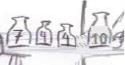 7 4 4 10